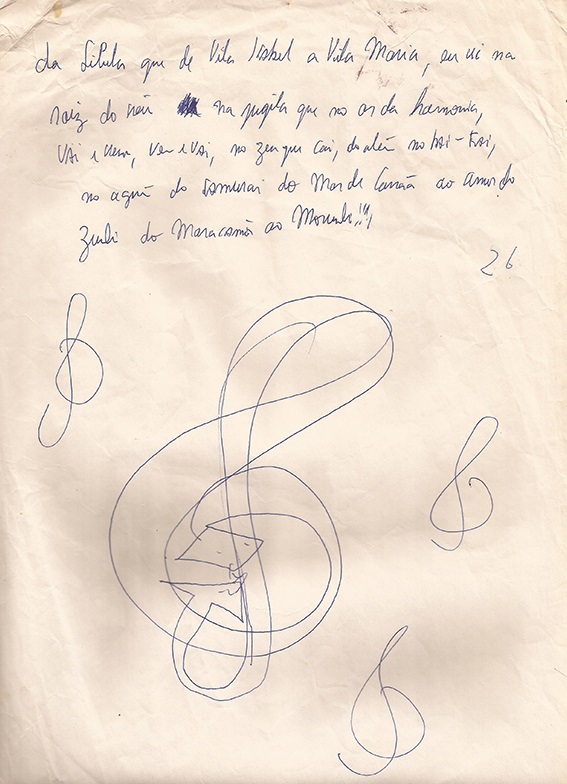 da que de Vila Isabel a Vila Maria, eu vi na
raiz do na pupila que no ar da harmonia,
vai e vem, vem e vai, no zen que cai, do além no hai-kai,
no do samurai do Mar de Canaã ao amor do
Zumbi do Maracanã ao Morumbi!!!
26